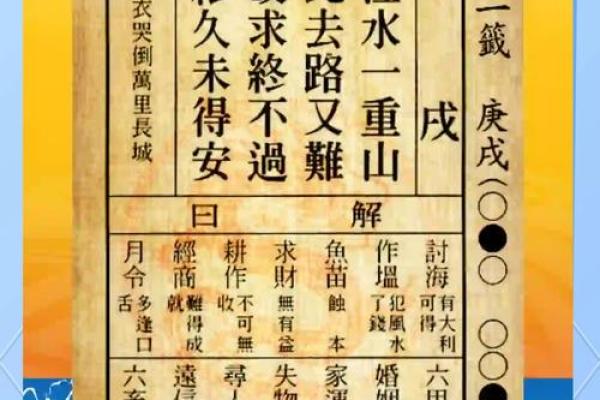 一籤 庚戌
戌
水一重山
去路又難
求終不過
久未得安
衣哭倒萬里長城
解曰
討海 有大利可得
作塭 犯風水了錢
魚苗 蝕本
求財 無有益
耕作 不可無收
經商 難得成就
月令 多逢口舌
六甲
婚姻
家運
失物
尋人
遠信
六畜